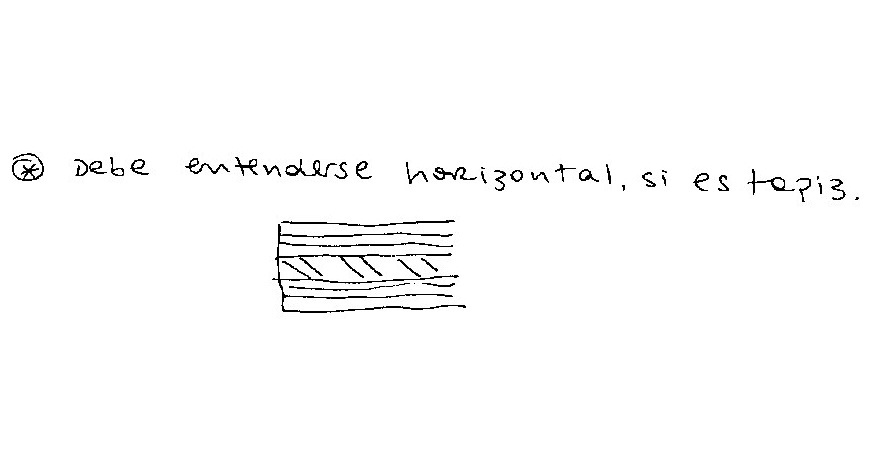 ⊛ Debe entenderse horizontal, si es tapiz.